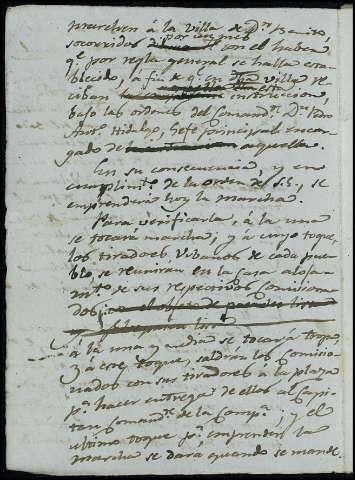 marchen á la villa de Dⁿ Benito,
socorridos por un mes con el haber
qᵉ por regla general se halla esta-
blecido, á fin de qᵉ en dha villa re-
ciban instruccion,
bajo las ordenes del Comandᵗᵉ Dⁿ Pedro
Antᵒ Hidalgo, Gefe principal encar-
gado de aquella.
En su consecuencia, y en
cumplimᵗᵒ de la orden de S.E., se
emprenderá hoy la marcha.
Para verificarla, á la una
se tocará marcha; y á cuyo toque,
los tiradores Urbanos de cada pue-
blo, se reuniran en la casa aloja-
mᵗᵒ de sus respectivos Comisiona-
dos
á la una y media se tocará tropa,
y á ese toque, saldrán los Comisio-
nados con sus tiradores á la plaza
pᵃ hacer entrega de ellos al Capi-
tan Comandᵗᵉ de la Compᵃ; y el
ultimo toque pᵃ emprender la
marcha se dará quando se mande.